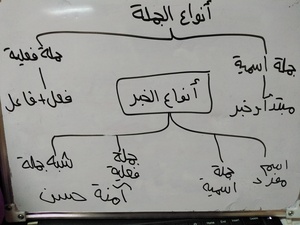 أنواع الجملة
جملة اسمية
جملة فعلية
مبتدأ+خبر
فعل+فاعل
أنواع الخبر
اسم مفرد
جملة اسمية
جملة فعلية
شبه جملة
آمنة حسن